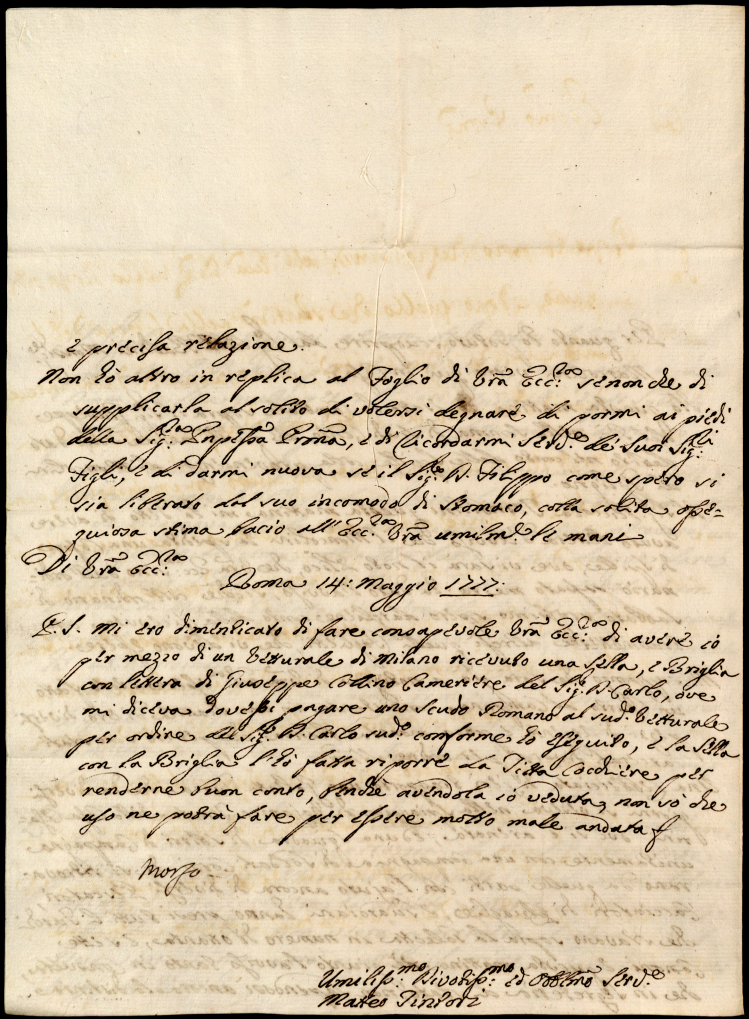 e precisa relazione.
Non hò altro in replica al Foglio di Vrā Ecc:za senonche di
supplicarla al solito di volersi degnare di pormi ai piedi
della Sig:ra Pnpessa Pròna, e di ricordarmi Serv:e de' suoi Sig:li
Figli, e di darmi nuova se il Sig:re D. Filippo come spero si
sia liberato dal suo incomodo di stomaco, colla solita osse=
quiosa stima bacio all' Ecc:za Vrā umilm:e le mani
Di Vrā Ecc:za
Roma 14: Maggio 1777:
P. S. Mi ero dimenticato di fare consapevole Vrā Ecc:za di avere io
per mezzo di un Vetturale di Milano ricevuto una Sella, e Briglia
con lettera di Giuseppe Collino Cameriere del Sig:r D. Carlo, ove
mi diceva dovessi pagare uno scudo Romano al sud:o Vetturale
per ordine del Sig:r D. Carlo sud:o conforme hò eseguito, e la Sella
con la Briglia l'hò fatta riporre da Titta Cocchiere per
renderne buon conto, benche avendola io veduta, non sò che
uso ne potrà fare per essere molto male andata
Morso
Umiliss:mo Divotiss:mo ed Obblmo Serv:e
Matteo Tintori